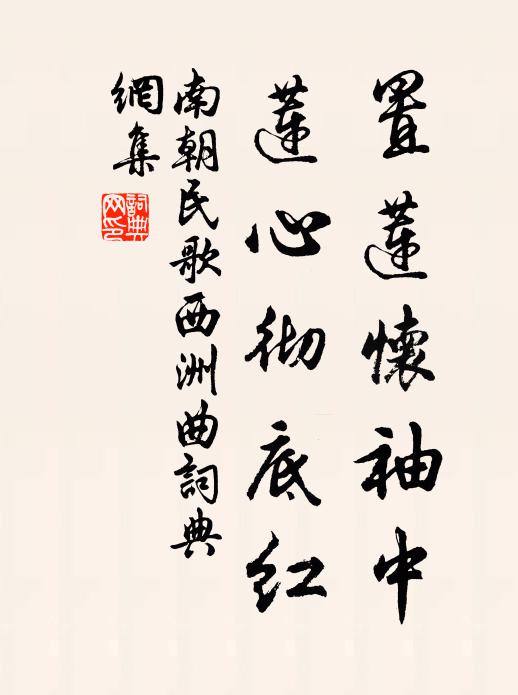 置蓮懷袖中
蓮心彻底紅
南朝民歌西洲曲詞典
網集
詞典
网印